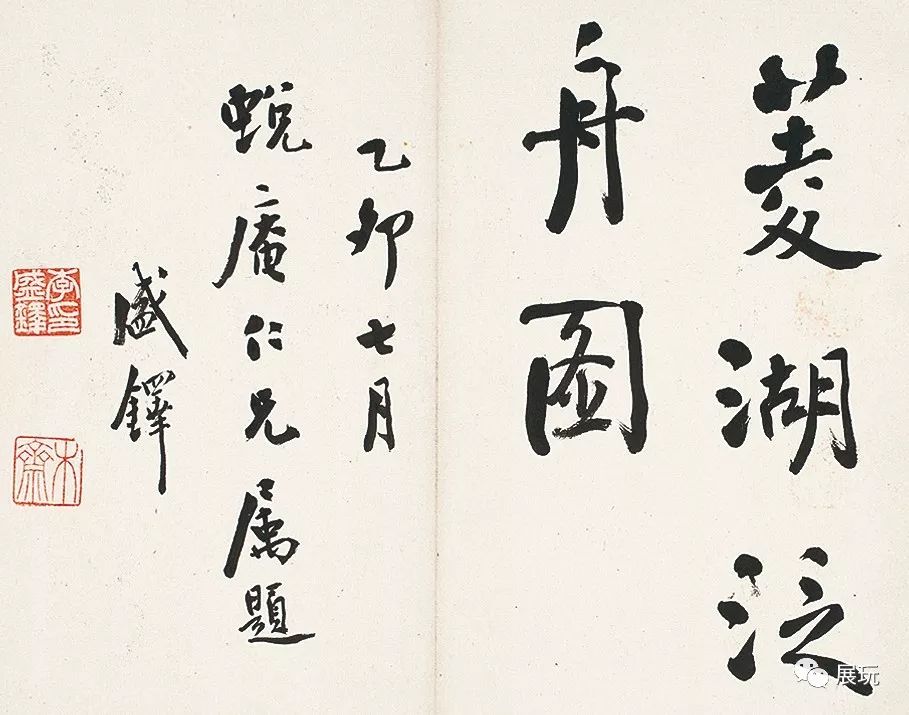 菱湖泛
舟圖
乙卯七月
蜕庵仁兄属題
盛鐸
李印
盛鐸
木齋
展玩